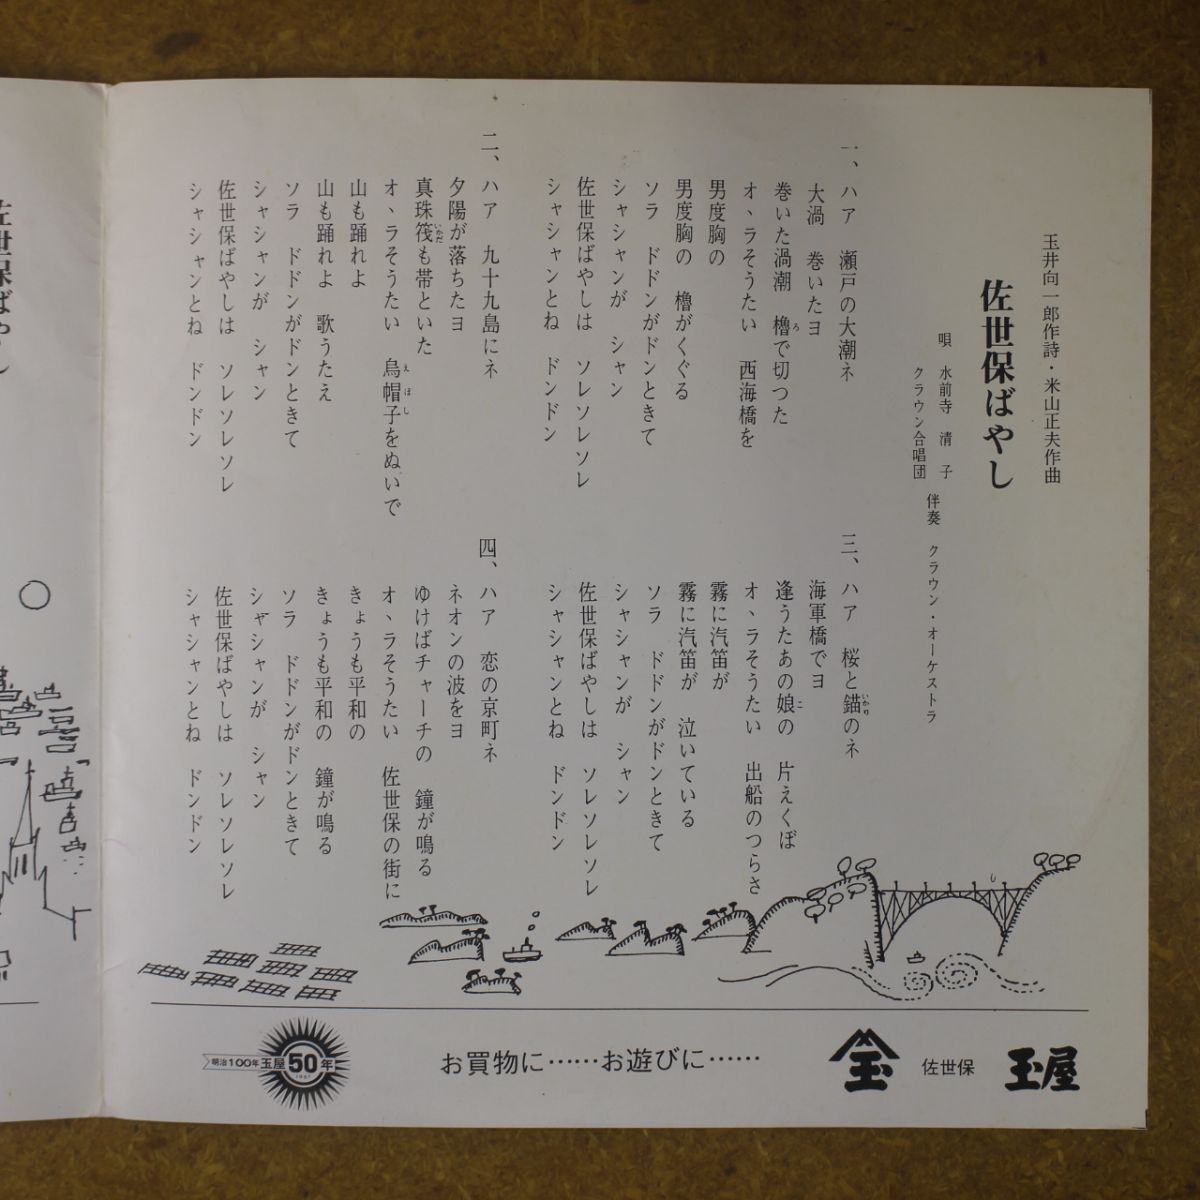 玉井向一郎作詩・米山正夫作曲
佐世保ばやし
唄 水前寺 清子
クラウン合唱団
伴奏 クラウン・オーケストラ
一、ハア 瀬戸の大潮ネ
大渦 巻いたヨ
巻いた渦潮 櫓で切つた
ろ
オヽラそうたい 西海橋を
男度胸の
男度胸の 櫓がくぐる
ソラ ドドンがドンときて
シャシャンが シャン
佐世保ばやしは ソレソレソレ
シャシャンとね ドンドン
二、ハア 九十九島にネ
夕陽が落ちたヨ
真珠筏も帯といた
いかだ
オヽラそうたい 烏帽子をぬいで
えぼし
山も踊れよ
山も踊れよ 歌うたえ
ソラ ドドンがドンときて
シャシャンが シャン
佐世保ばやしは ソレソレソレ
シャシャンとね ドンドン
三、ハア 桜と錨のネ
いかり
海軍橋でヨ
逢うたあの娘の 片えくぼ
こ
オヽラそうたい 出船のつらさ
霧に汽笛が
霧に汽笛が 泣いている
ソラ ドドンがドンときて
シャシャンが シャン
佐世保ばやしは ソレソレソレ
シャシャンとね ドンドン
四、ハア 恋の京町ネ
ネオンの波をヨ
ゆけばチャーチの 鐘が鳴る
オヽラそうたい 佐世保の街に
きょうも平和の
きょうも平和の 鐘が鳴る
ソラ ドドンがドンときて
シャシャンが シャン
佐世保ばやしは ソレソレソレ
シャシャンとね ドンドン
佐世保ばやし
明治100年 玉屋 50年
1967
お買物に……お遊びに……
玉
佐世保
玉屋